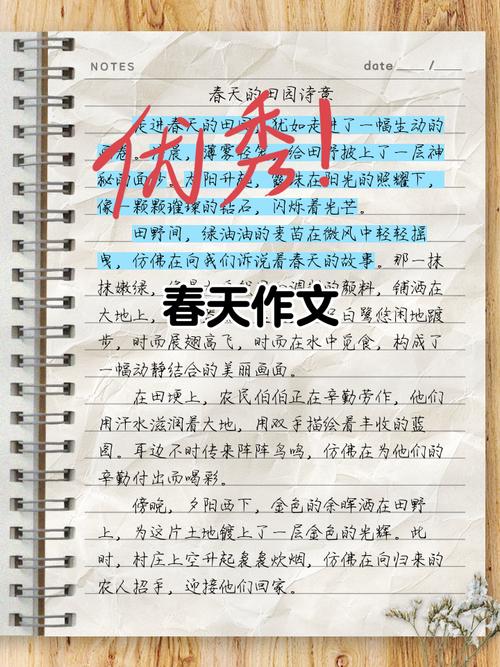 NOTES
date ___ / ___
春天的田园诗意
走进春天的田园,犹如走进了一幅生动的
画卷。清晨,薄雾轻笼,给田野披上了一层神
秘的面纱。太阳升起,露珠在阳光的照耀下,
像一颗颗璀璨的钻石,闪烁着光芒。
优秀!
田野间,绿油油的麦苗在微风中轻轻摇
曳,仿佛在向我们诉说着春天的故事。那一抹
抹嫩绿,的颜料,铺洒在
春天作文
大地上,白鹭悠闲地踱
步,时而展翅高飞,时而在水中觅食,构成了
一幅动静结合的美丽画面。
在田埂上,农民伯伯正在辛勤劳作,他们
用汗水滋润着大地,用双手描绘着丰收的蓝
图。耳边不时传来阵阵鸟鸣,仿佛在为他们的
辛勤付出而喝彩。
傍晚,夕阳西下,金色的余晖洒在田野
上,为这片土地镀上了一层金色的光辉。此
时,村庄上空升起袅袅炊烟,仿佛在向归来的
农人招手,迎接他们回家。